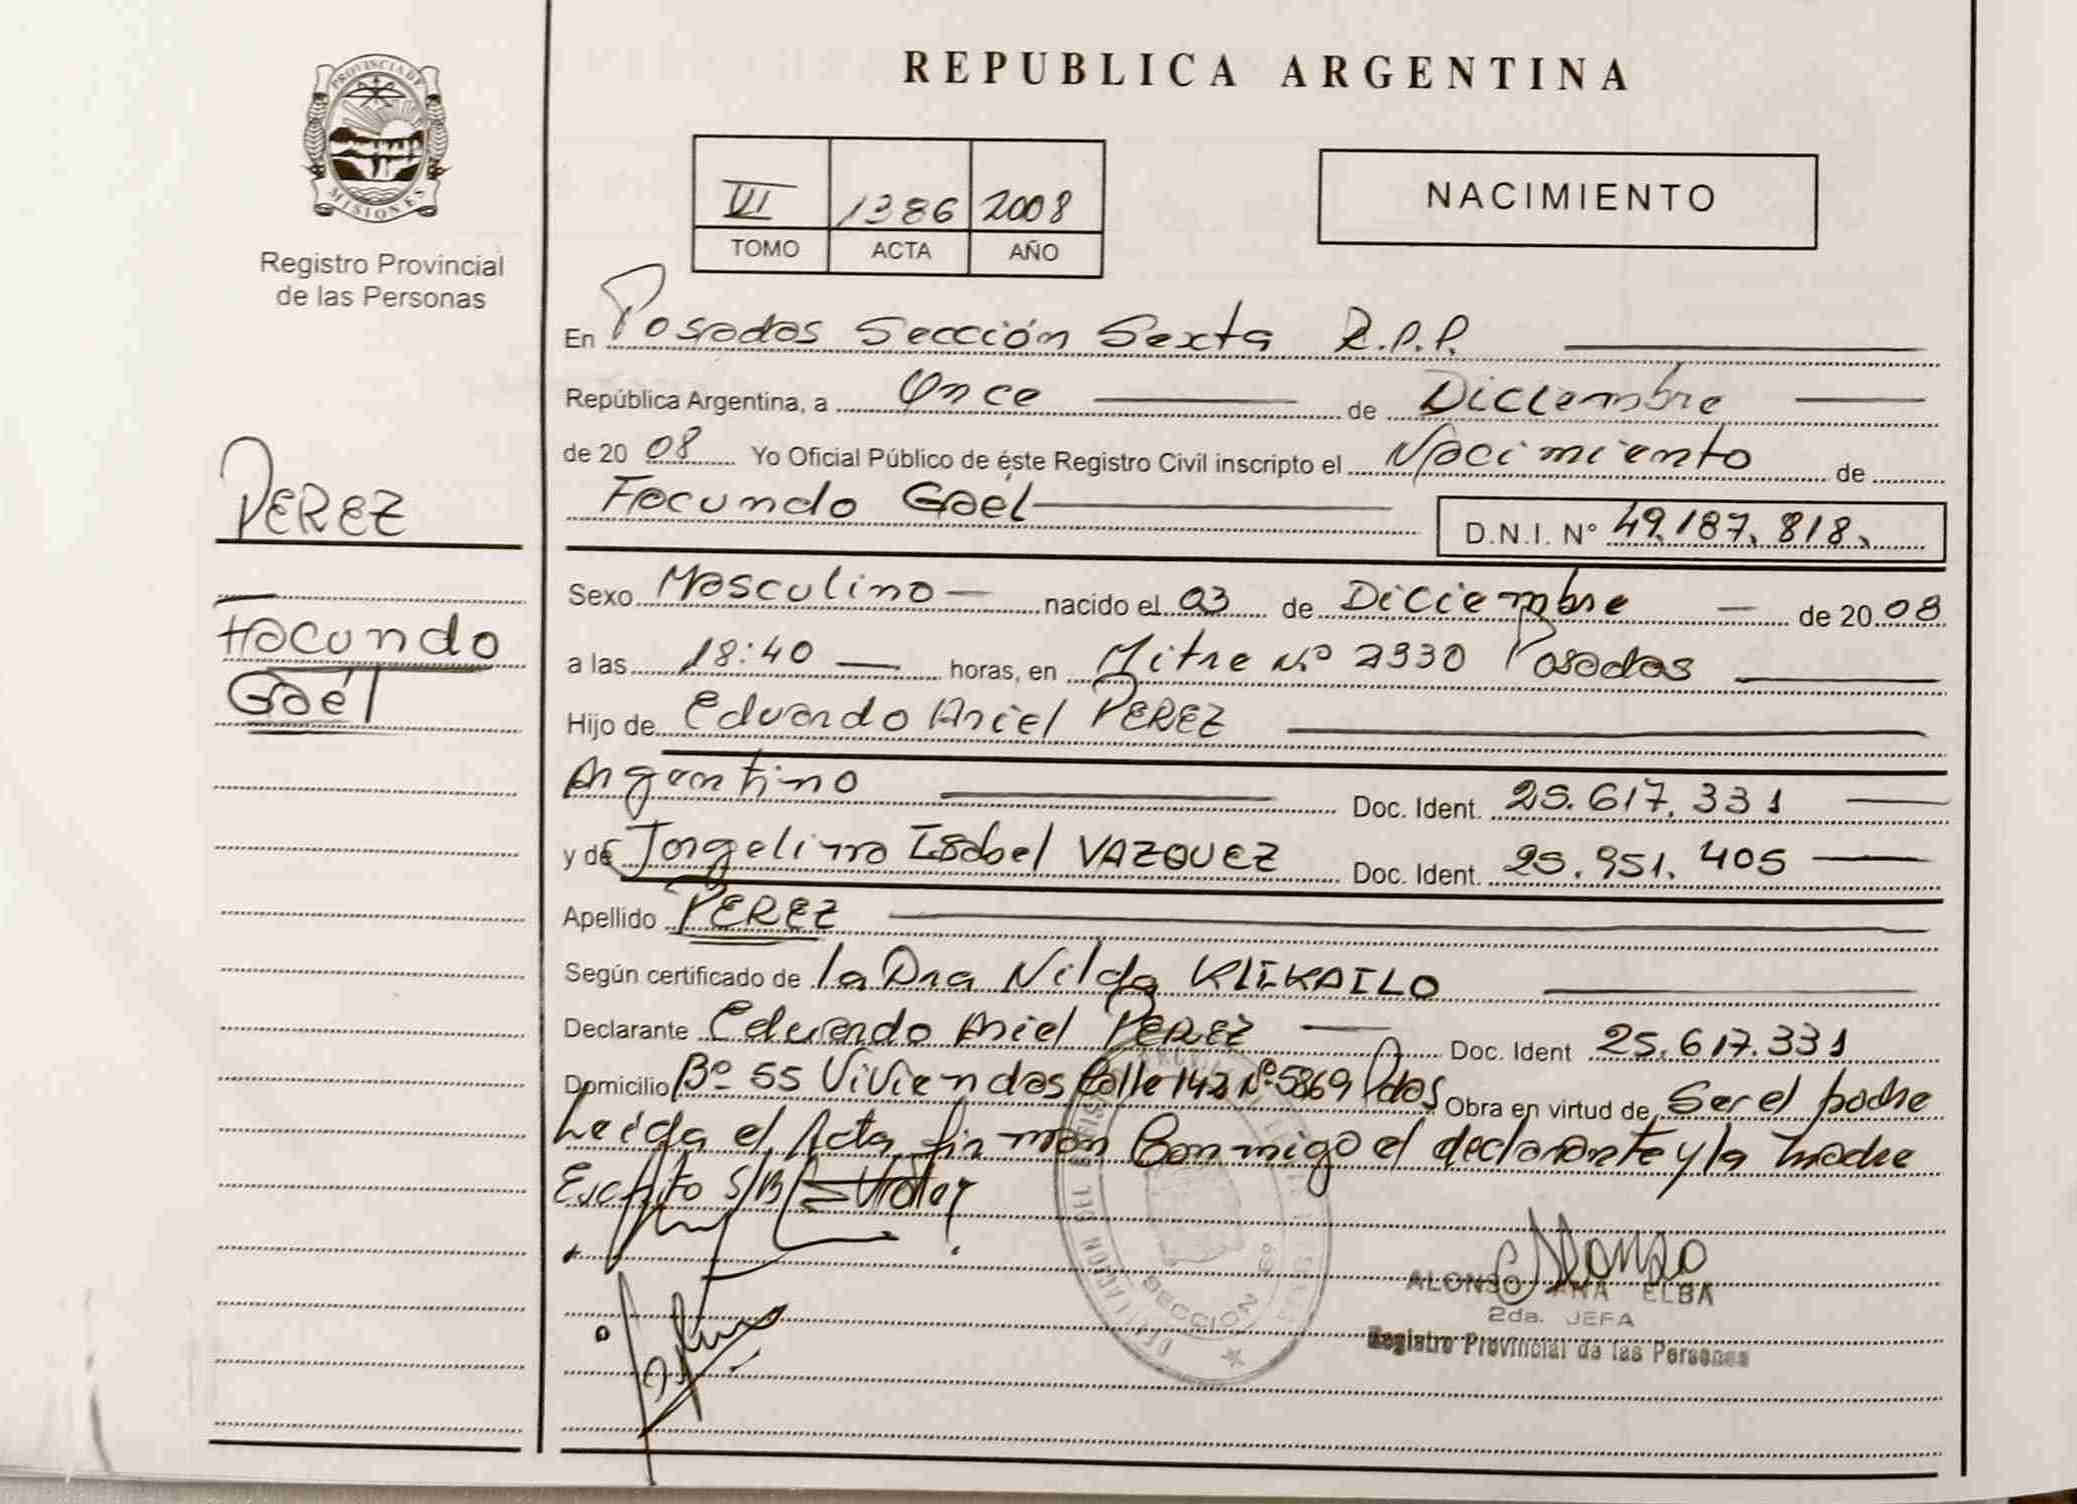 PROVINCIA DE
MISIONES
Registro Provincial
de las Personas
PEREZ
Facundo
Gaél
REPUBLICA ARGENTINA
VI 1386 2008
TOMO ACTA AÑO
NACIMIENTO
En Posadas Sección Sexta R.P.P.
República Argentina, a Once de Diciembre
de 20 08 Yo Oficial Público de éste Registro Civil inscripto el Nacimiento de
Facundo Gael D.N.I. N° 49.187.818.
Sexo Masculino nacido el 03 de Diciembre de 20 08
a las 18:40 horas, en Mitre Nº 2330 Posadas
Hijo de Eduardo Ariel PEREZ
Argentino Doc. Ident. 25.617.331
y de Jorgelina Isabel VAZQUEZ Doc. Ident. 25.951.405
Apellido PEREZ
Según certificado de la Dra Nilda
Declarante Eduardo Ariel PEREZ Doc. Ident 25.617.331
Domicilio Bº 55 Viviendas Calle 142 Nº 5869 Pdas Obra en virtud de Ser el padre
Leída el Acta firman Conmigo el declarante y la madre
Escrito S/B
SECCION 6º
ALONSO ANA ELBA
2da. JEFA
Registro Provincial de las Personas